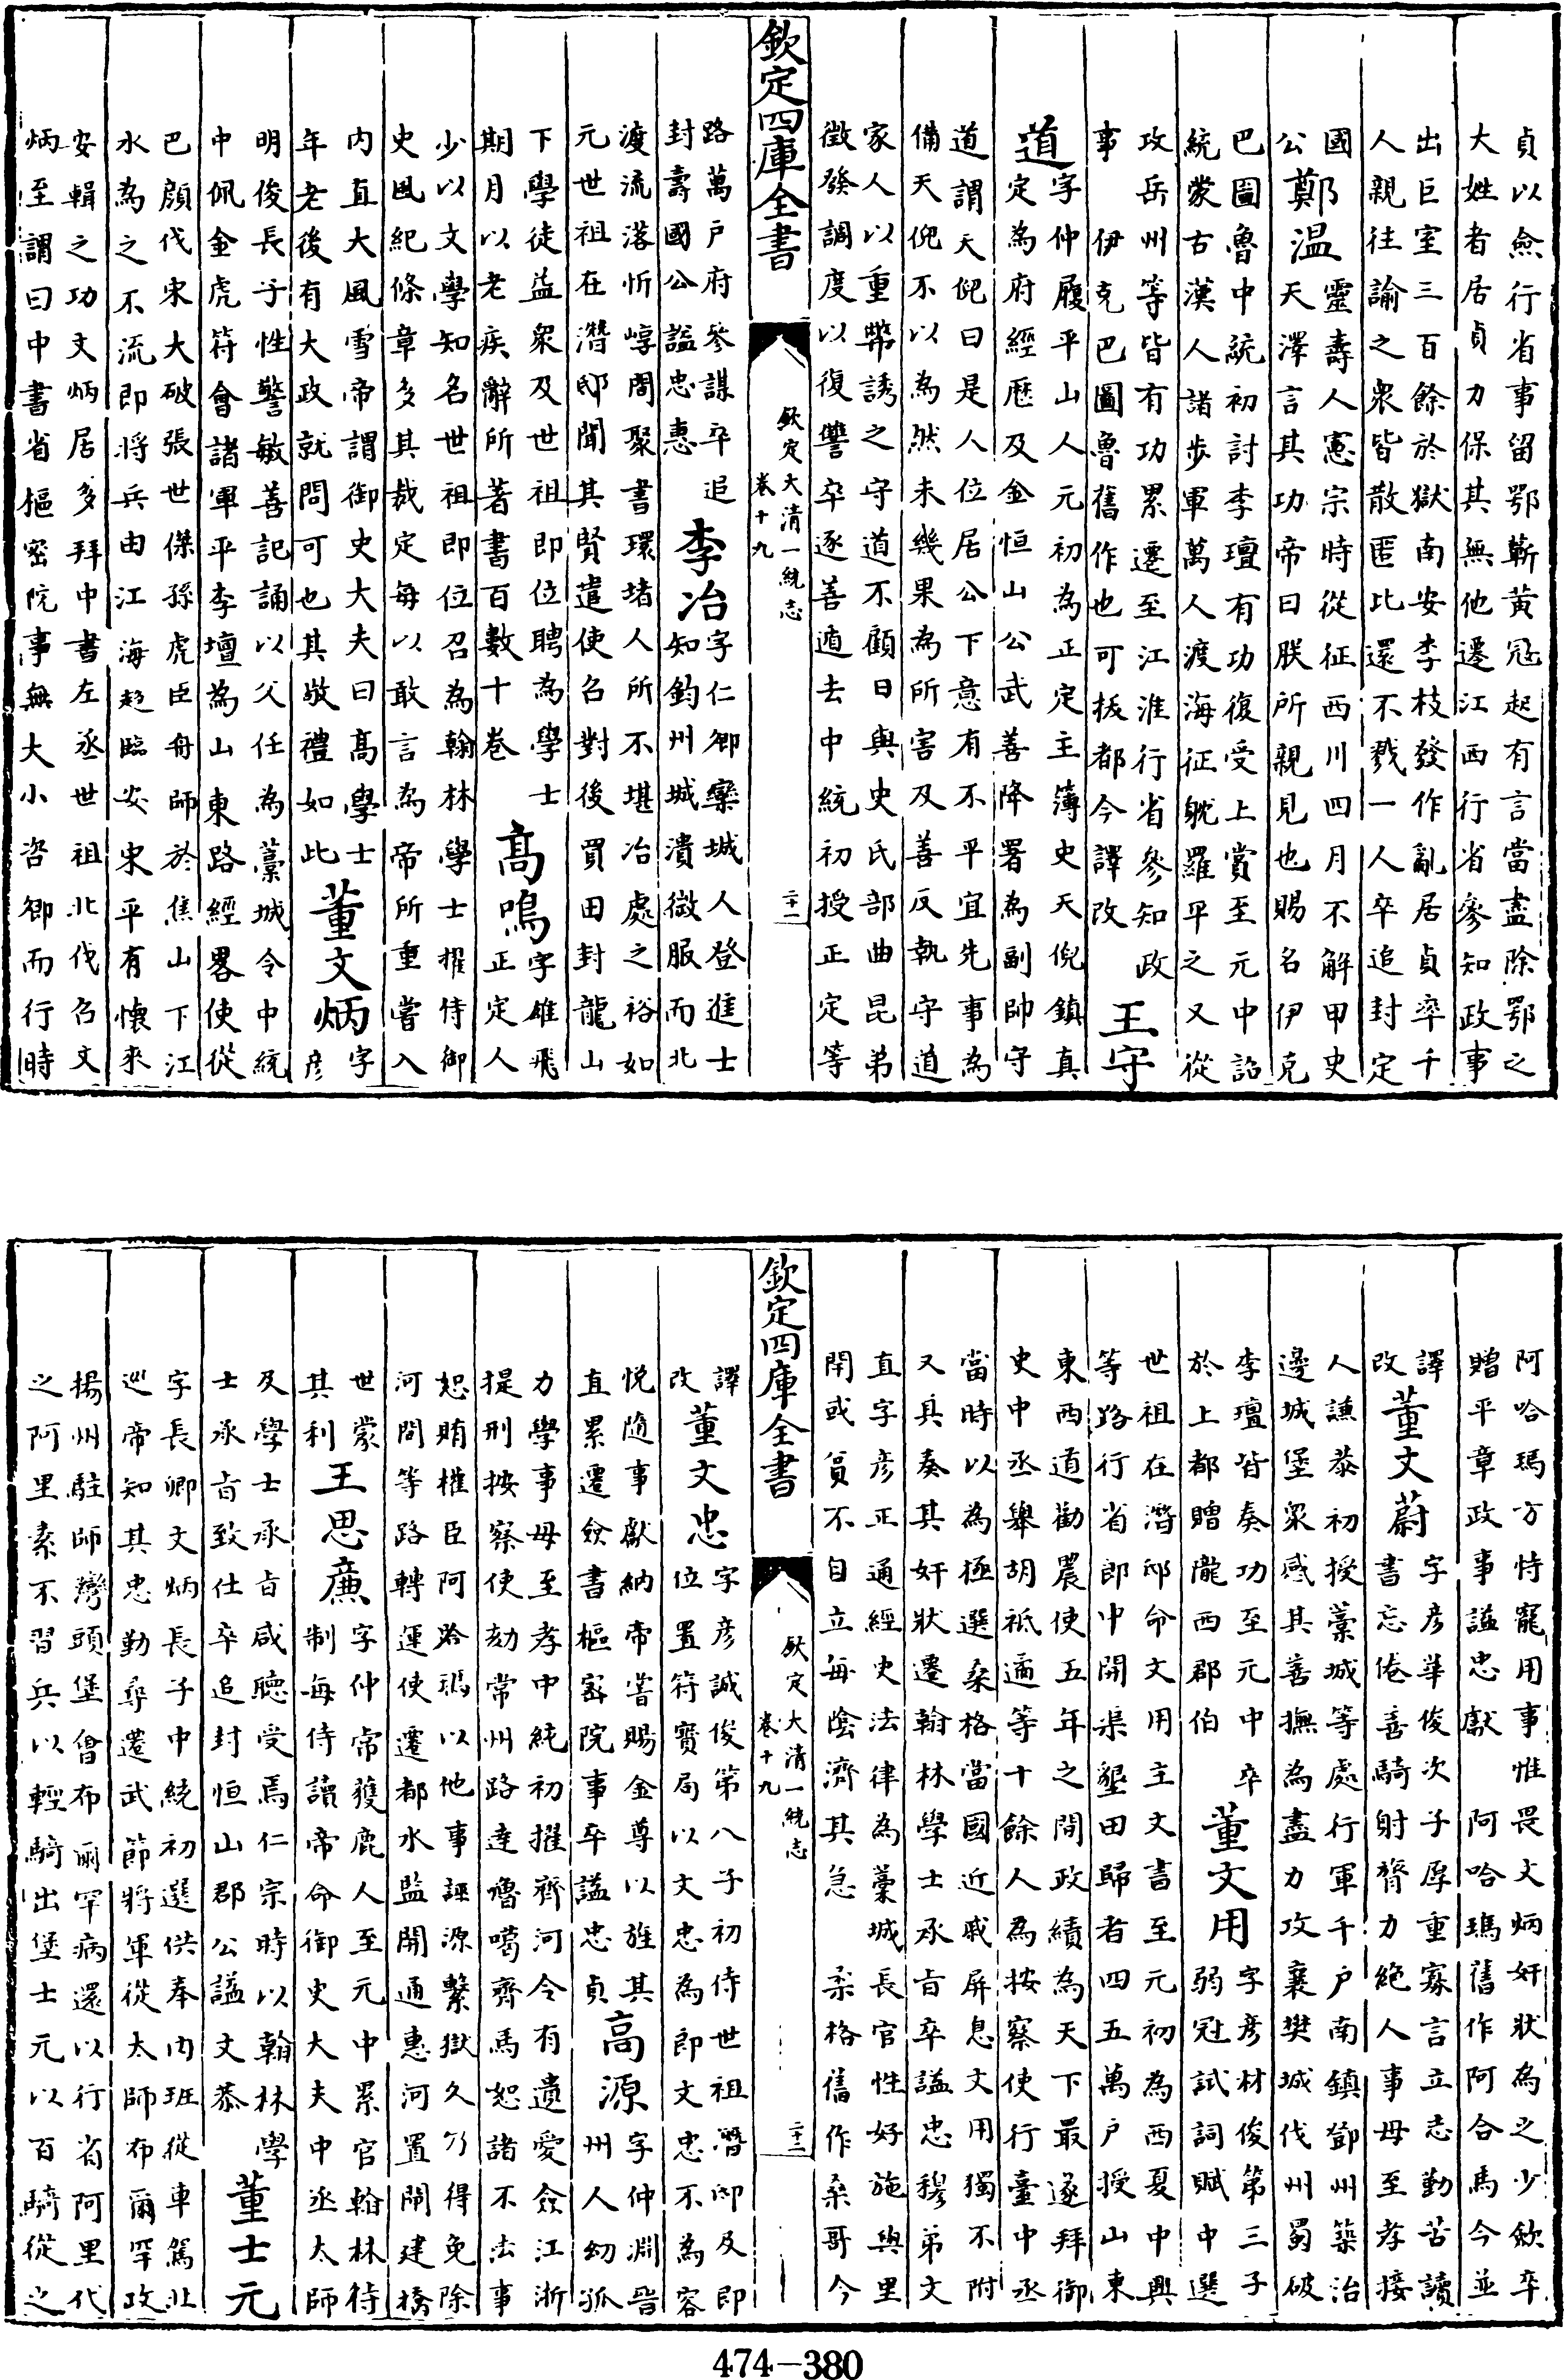 貞以僉行省事留鄂蘄黄冦起有言當盡除鄂之
大姓者居貞力保其無他遷江西行省參知政事
出巨室三百餘於獄南安李枝發作亂居貞率千
人親往諭之衆皆散匿比還不戮一人卒追封定
國
公
鄭温
靈壽人憲宗時從征西川四月不解甲史
天澤言其功帝曰朕所親見也賜名伊克
巴圖魯中統初討李璮有功復受上賞至元中詔
統蒙古漢人諸步軍萬人渡海征躭羅平之又從
攻岳州等皆有功累遷至江淮行省參知政
事 伊克巴圖魯舊作也可拔都今譯改
王守
道
字仲履平山人元初為正定主簿史天倪鎮真
定為府經歷及金恒山公武善降署為副帥守
道謂天倪曰是人位居公下意有不平宜先事為
備天倪不以為然未幾果為所害及善反執守道
家人以重幣誘之守道不顧日與史氏部曲昆弟
徵發調度以復讐卒逐善遁去中統初授正定等
欽定四庫全書
欽定大清一統志
卷十九
二十一
路萬户府參謀卒追
封壽國公諡忠惠
李冶
字仁卿欒城人登進士
知鈞州城潰微服而北
渡流落忻崞間聚書環堵人所不堪冶處之裕如
元世祖在潛邸聞其賢遣使召對後買田封龍山
下學徒益衆及世祖即位聘為學士
期月以老疾辭所著書百數十卷
高鳴
字雄飛
正定人
少以文學知名世祖即位召為翰林學士擢侍御
史風紀條章多其裁定每以敢言為帝所重嘗入
内直大風雪帝謂御史大夫曰高學士
年老後有大政就問可也其敬禮如此
董文炳
字
彦
明俊長子性警敏善記誦以父任為藁城令中統
中佩金虎符會諸軍平李璮為山東路經畧使從
巴顔伐宋大破張世傑孫虎臣舟師於焦山下江
水為之不流即將兵由江海趍臨安宋平有懷來
安輯之功文炳居多拜中書左丞世祖北伐召文
炳至謂曰中書省樞密院事無大小咨卿而行時
阿哈瑪方恃寵用事惟畏文炳奸狀為之少斂卒
贈平章政事諡忠獻 阿哈瑪舊作阿合馬今並
譯
改
董文蔚
字彦華俊次子厚重寡言立志勤苦讀
書忘倦善騎射膂力絶人事母至孝接
人謙恭初授藁城等處行軍千户南鎮鄧州築治
邊城堡衆感其善撫為盡力攻襄樊城伐州蜀破
李璮皆奏功至元中卒
於上都贈隴西郡伯
董文用
字彦材俊第三子
弱冠試詞賦中選
世祖在潛邸命文用主文書至元初為西夏中興
等路行省郎中開渠墾田歸者四五萬户授山東
東西道勸農使五年之間政績為天下最遂拜御
史中丞舉胡祗遹等十餘人為按察使行臺中丞
當時以為極選桑格當國近戚屏息文用獨不附
又具奏其奸狀遷翰林學士承旨卒諡忠穆弟文
直字彦正通經史法律為藁城長官性好施與里
閈或貧不自立每陰濟其急 桑格舊作桑哥今
欽定四庫全書
欽定大清一統志
卷十九
二十二
譯
改
董文忠
字彦誠俊第八子初侍世祖潛邸及即
位置符寶局以文忠為郎文忠不為容
悦隨事獻納帝嘗賜金尊以旌其
直累遷僉書樞密院事卒諡忠貞
高源
字仲淵晉
州人幼孤
力學事母至孝中統初擢齊河令有遺愛僉江浙
提刑按察使劾常州路達嚕噶齊馬恕諸不法事
恕賄權臣阿哈瑪以他事誣源繫獄久乃得免除
河間等路轉運使遷都水監開通惠河置閘建橋
世蒙
其利
王思廉
字仲常獲鹿人至元中累官翰林待
制每侍讀帝命御史大夫中丞太師
及學士承旨咸聽受焉仁宗時以翰林學
士承旨致仕卒追封恒山郡公諡文恭
董士元
字長卿文炳長子中統初選供奉内班從車駕北
巡帝知其忠勤尋遷武節將軍從太師布爾罕攻
揚州駐師灣頭堡會布爾罕病還以行省阿里代
之阿里素不習兵以輕騎出堡士元以百騎從之
474-380